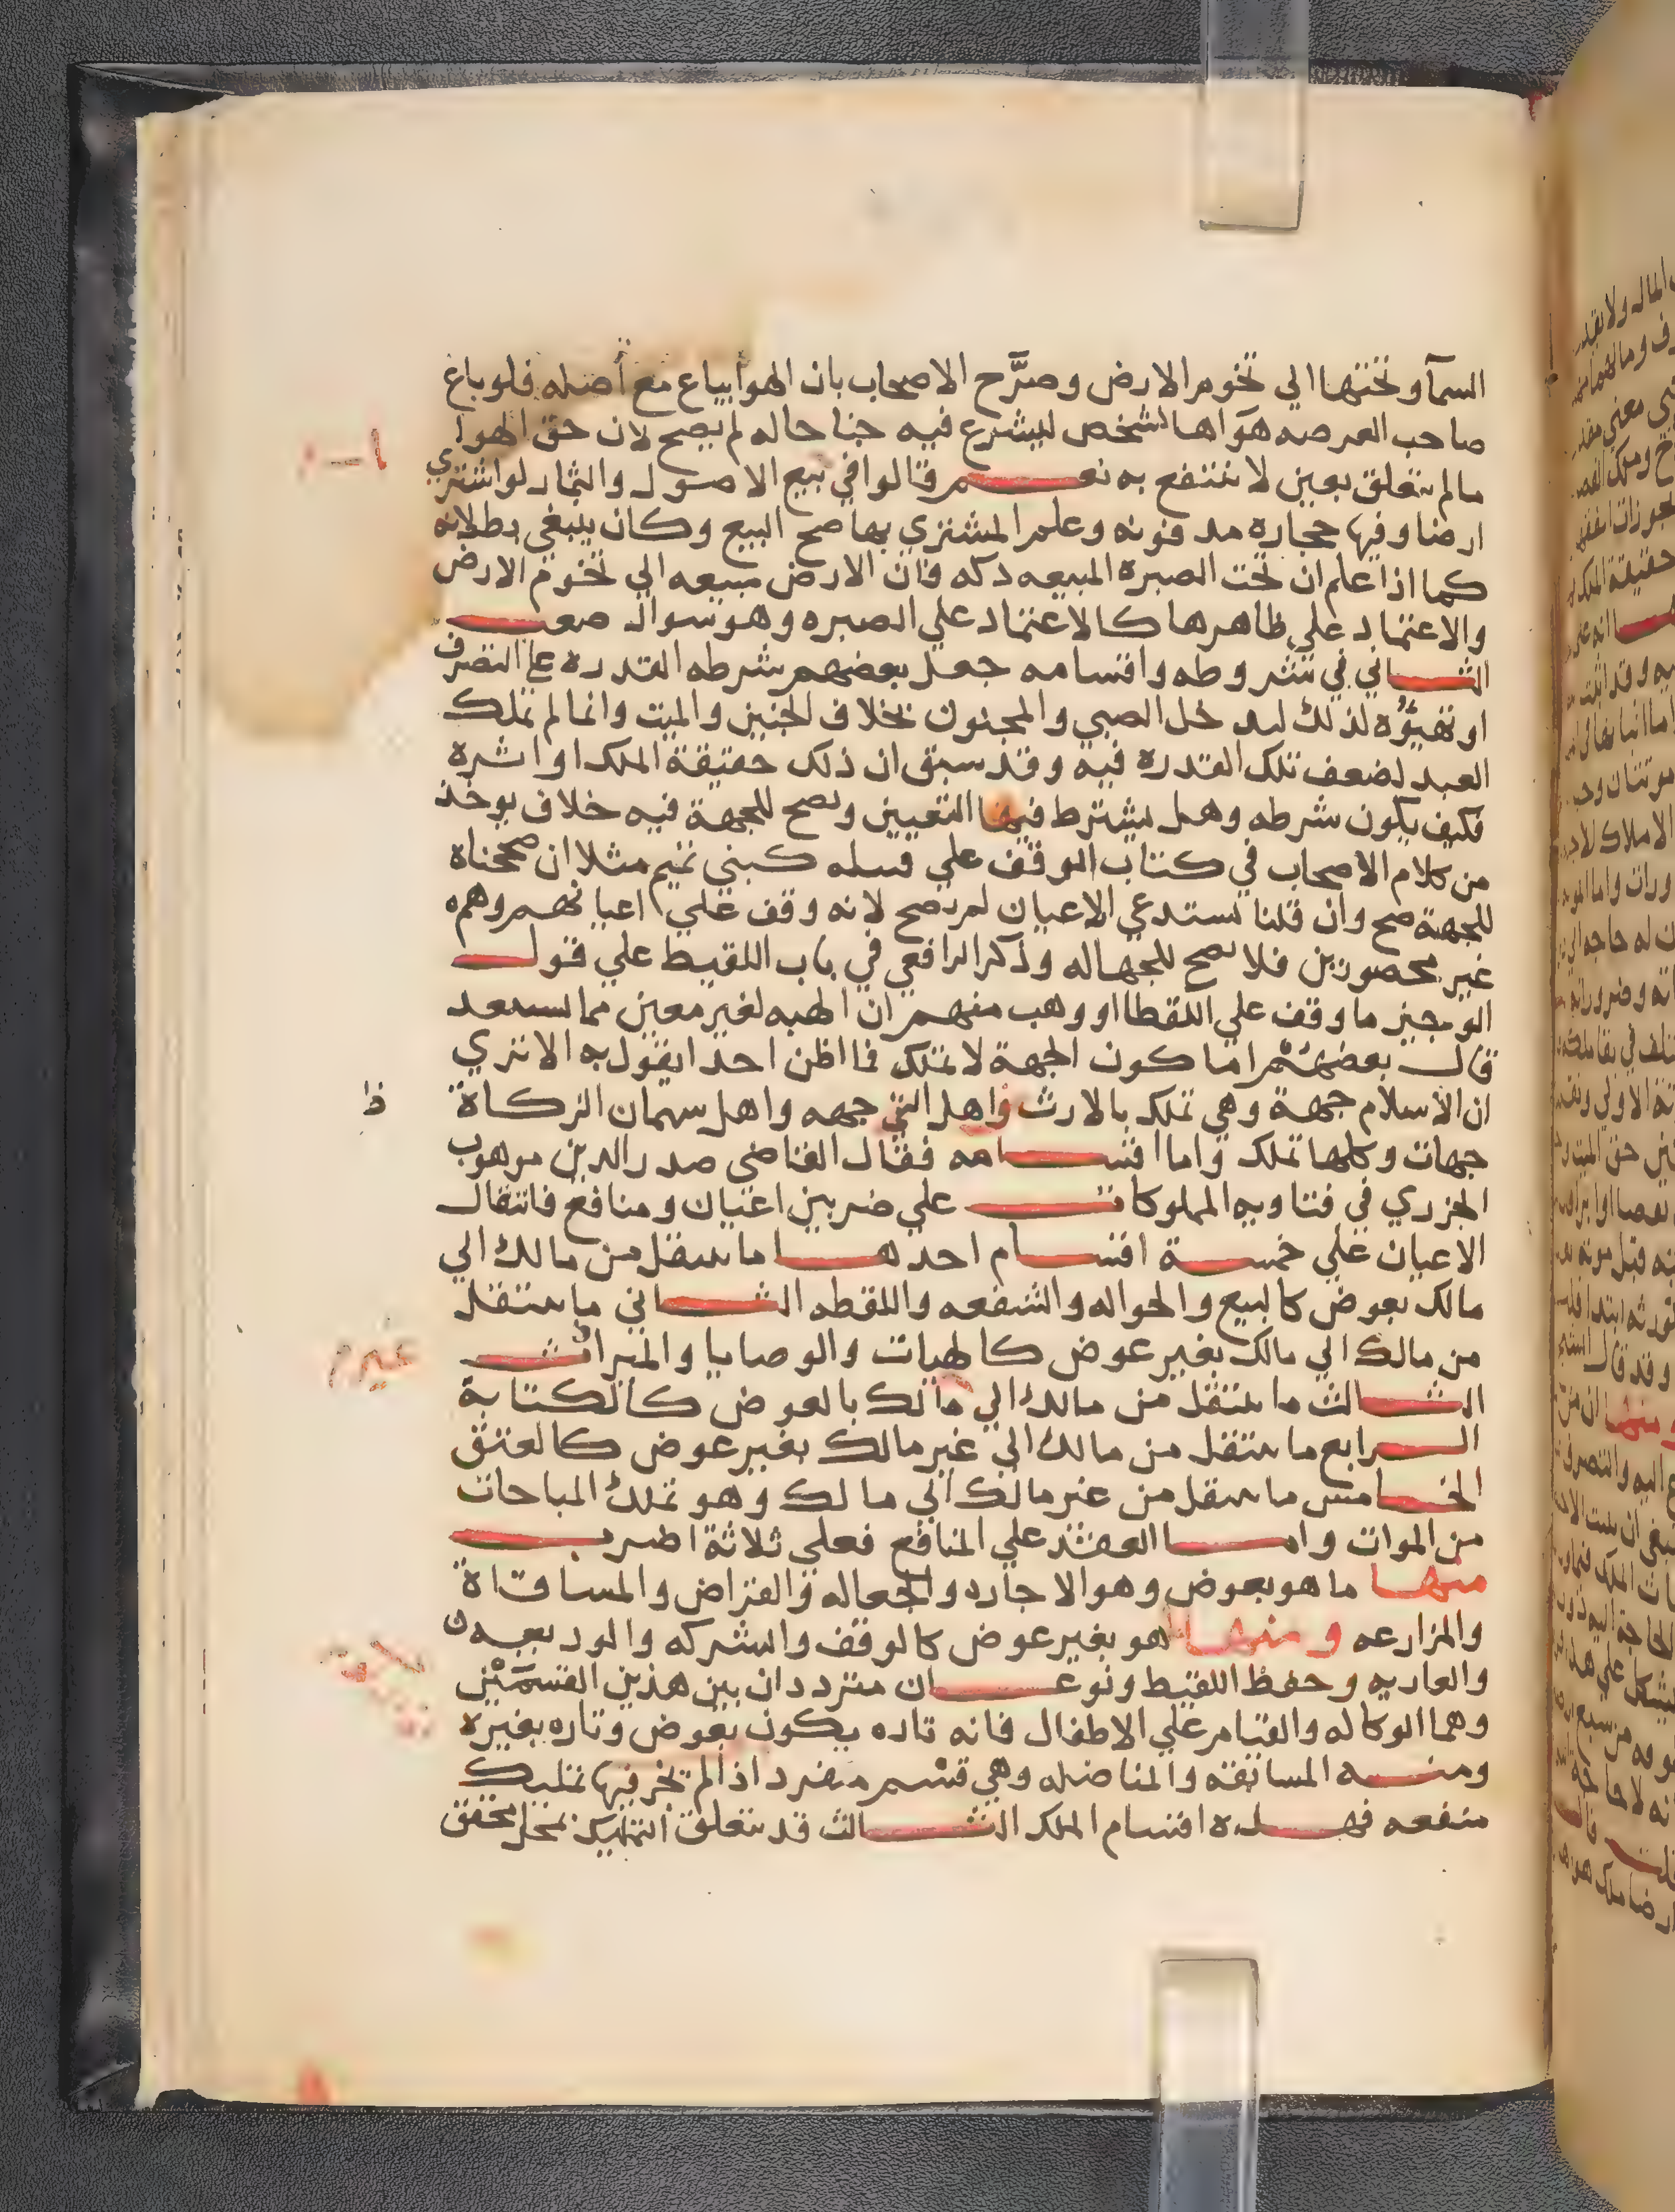 السمآ وتحتها الي تخوم الارض وصرَّح الاصحاب بان الهوا يباع مع أصله فلو باع
صاحب العرصه هوآها لشخص ليشرع فيه جناحاله لم يصح لان حق الهوا
مالم يتعلق بعين لا ينتفع به نعم قالوا في بيع الاصول والثمار لو اشتري
ارضا وفيها حجاره مدفونه وعلم المشتري بها صح البيع وكان ينبغي بطلانه
كما اذا علم ان تحت الصبرة المبيعه دكه فان الارض مبيعه الي تخوم الارض
والاعتماد علي ظاهرها كالاعتماد علي الصبره وهو سوال صعب
الثاني في شروطه واقسامه جعل بعضهم شرطه القدره علي التصرف
او تهيؤه لذلك ليدخل الصبي والمجنون بخلاف الجنين والميت وانما لم تملك
العبد لضعف تلك القدرة فيه وقد سبق ان ذلك حقيقة الملك او اثره
فكيف يكون شرطه وهل يشترط فيها التعيين ويصح للجهة فيه خلاف يوخذ
من كلام الاصحاب في كتاب الوقف علي قبيله كبني تميم مثلا ان صححناه
للجهة صح وان قلنا يستدعي الاعيان لم يصح لانه وقف علي اعيانهم وهم
غير محصورين فلا يصح للجهاله وذكر الرافعي في باب اللقيط علي قول
الوجيز ما وقف علي اللقطا او وهب منهم ان الهبه لغير معين مما يستبعد
قال بعضهم اما كون الجهة لا تملك فما اظن احدا يقول به الا تري
ان الاسلام جهة وهي تملك بالارث واهل الفي جهه واهل سهمان الزكاة
جهات وكلها تملك واما اقسامه فقال القاضي صدر الدين موهوب
الجزري في فتاويه المملوكات علي ضربين اعيان ومنافع فانتقال
الاعيان علي خمسة اقسام احدها ما ينتقل من مالك الي
مالك بعوض كالبيع والحواله والشفعه واللقطه الثاني ما ينتقل
من مالك الي مالك بغير عوض كالهبات والوصايا والميراث
الثالث ما ينتقل من مالك الي مالك بالعوض كالكتابة
الرابع ما ينتقل من مالك الي غير مالك بغير عوض كالعتق
الخامس ما ينتقل من غير مالك الي مالك وهو تملك المباحات
من الموات واما العقد علي المنافع فعلي ثلاثة اضرب
منها ما هو بعوض وهو الاجاره والجعاله والقراض والمساقاة
والمزارعه ومنها هو بغير عوض كالوقف والشركه والوديعه
والعاريه وحفظ اللقيط ونوعان مترددان بين هذين القسمَيْن
وهما الوكاله والقيام علي الاطفال فانه تاره يكون بعوض وتاره بغيره
ومنه المسابقه والمناضله وهي قسم مفرد اذ المخرفيها تمليك
منفعه فهذه اقسام الملك الثالث قد يتعلق التمليك بمحل محقق
غير م